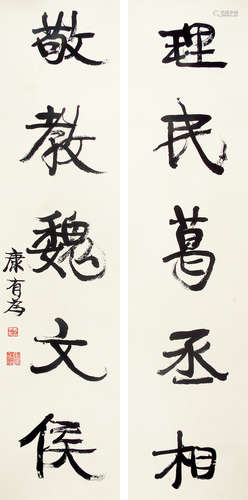 理民葛丞相
敬教魏文侯
康有为